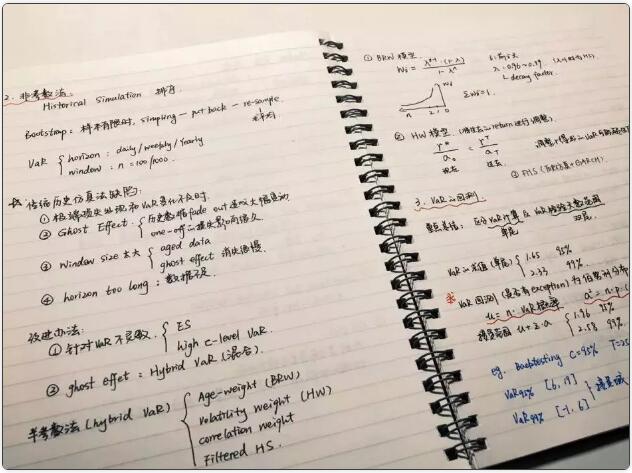 2. 非参数法:
Historical Simulation 排序.
Bootstrap: 样本有限时, simpling — put back — re-sample.
求平均
VaR { horizon: daily/weekly/yearly
window: n = 100/1000.
传统历史仿真法缺陷:
① 极端损失出现和VaR变化不及时.
② Ghost Effect. { 历史数据 fade out
one-off 的损失影响很久.
③ Window size 太大 { aged data
ghost effect 消失很慢.
④ horizon too long: 数据不足.
改进办法:
① 针对VaR不灵敏. { ES
high c-level VaR.
② ghost effet: Hybrid VaR (混合).
半参数法 (hybrid VaR) { Age-weight (BRW)
Volatility weight (HW)
correlation weight
Filtered HS.
① BRW 模型.
Wi = λ^(i-1)·(1-λ) / 1-λ^n
i: 前i天
λ: 0.96~0.99.
decay factor.
n 2 1 0
ΣWi=1.
② HW 模型.
r* / a0 = rT / aT
现在 过去
③ FHS (历史仿真+GARCH).
3. VaR的回测
重点总结: 区分VaR计算 & VaR
单尾 双尾.
VaR的求值 (单尾) { 1.65 95%
2.33 99%.
VaR回测 (是否有exception) 为伯努利分布
u = n·
a² = n·p·(
u±z·a { 1.96 95%
2.58 99%.
eg. Backtesting C=95% T=25
VaR95% [6, 19]
VaR99% [-1, 6]